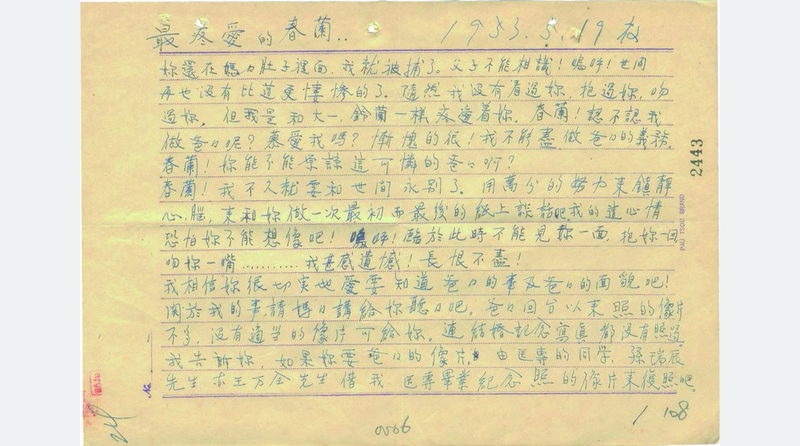 最疼愛的春蘭.. 1953.5.19夜
妳還在媽々肚子裡面,我就被捕了。父子不能相識!嗚呼!世间
再也没有比這更悽慘的了。隨然我没有看過妳,抱過妳,吻
過妳,但我是和大一,鈴蘭一樣疼愛着妳。春蘭!認不認我
做爸々呢?慕愛我嗎?慚愧的很!我不能盡做爸々的義務。
春蘭!妳能不能原諒這可憐的爸々啊?
春蘭!我不久就要和世间永別了。用萬分的努力來鎮靜
心腦,來和妳做一次最初而最後的紙上談話吧我的這心情
恐怕妳不能想像吧!嗚呼!臨於此時不能見妳一面,抱妳一回
吻妳一嘴…………我甚感遺憾!長恨不盡!
我相信妳很切実地愛要知道爸々的事及爸々的面貌吧!
関於我的事請媽々講給妳聽々吧。爸々回台以來照的像片
不多,没有適当的像片可給妳。連結婚記念寫真都没有照過
我告訴妳,如果妳要爸々的像片,由医專的同学,孫瑞辰
先生亦王万全先生借我医專畢業紀念照的像片來復照吧
2443
PAU TSOU BRAND
No.
0566
1 108